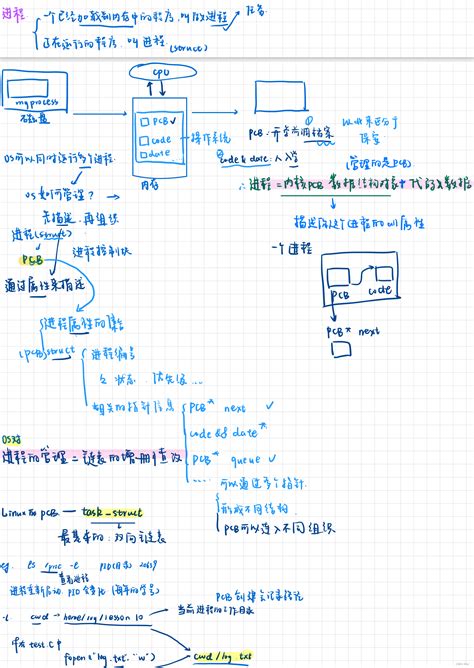 进程
一个已经加载到内存中的程序，叫做进程
任务
正在运行的程序，叫进程 (struct)
CPU
myprocess
磁盘
PCB
code
date
操作系统
内存
PCB：
(管理的是PCB)
code & date：人
OS可以同时运行多个进程.
OS如何管理？
先描述，再组织
∴进程=内核PCB数据结构对象+代码&数据
描述这个进程的all属性
进程(struct)
PCB
进程控制块
通过属性来描述
一个进程
PCB
code
PCB* next
进程属性的集合
(PCB) struct
进程编号
状态 优先级 ...
相关的指针信息
PCB* next
code & date*
PCB* queue
OS对
进程的管理 = 链表的增删查改
可以通过多个指针
形成不同结构
PCB可以连入不同组织
Linux的PCB — task_struct
最基本的：双向链表
eg. ls /proc -l
PID
查看进程
进程重新启动 PID会变化
当前进程的工作目录
cwd → home/
test.C中
fopen("log.txt", "w")
cwd/log.txt